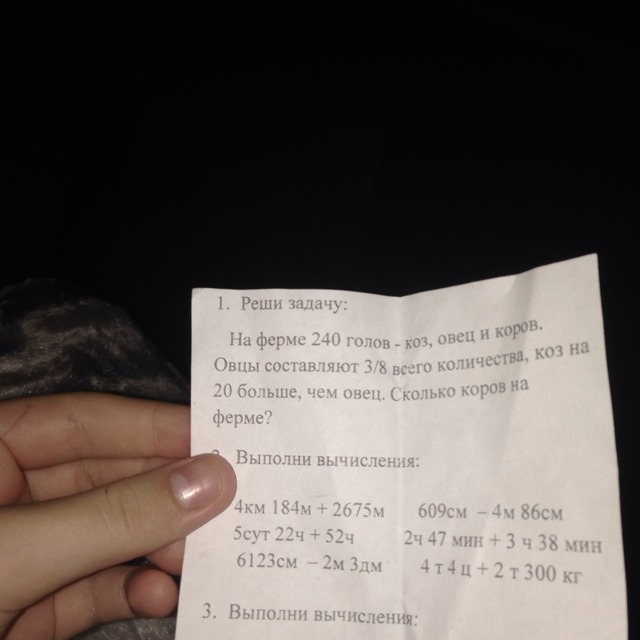 1. Реши задачу:
На ферме 240 голов - коз, овец и коров.
Овцы составляют 3/8 всего количества, коз на
20 больше, чем овец. Сколько коров на
ферме?
2. Выполни вычисления:
4км 184м + 2675м 609см – 4м 86см
5сут 22ч + 52ч 2ч 47 мин + 3 ч 38 мин
6123см – 2м 3дм 4 т 4 ц + 2 т 300 кг
3. Выполни вычисления: